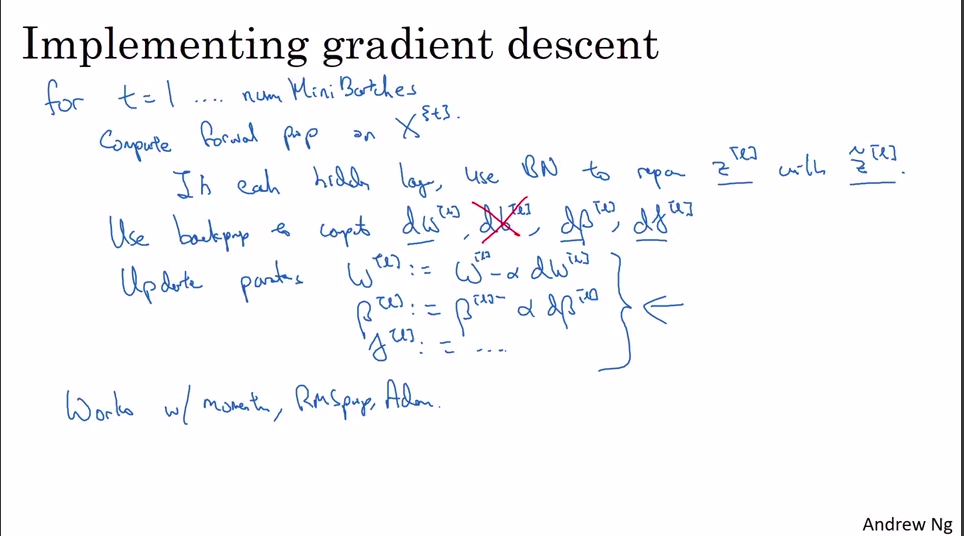 Implementing gradient descent
for t = 1 .... num MiniBatches
Compute forward prop on X^{t}.
In each hidden layer, use BN to repar z^[l] with z̃^[l].
Use backprop to compute dw^[l], db^[l], dβ^[l], dγ^[l]
Update params w^[l] := w^[l] - α dw^[l]
β^[l] := β^[l] - α dβ^[l]
γ^[l] := ....
Works w/ momentum, RMSprop, Adam.
Andrew Ng